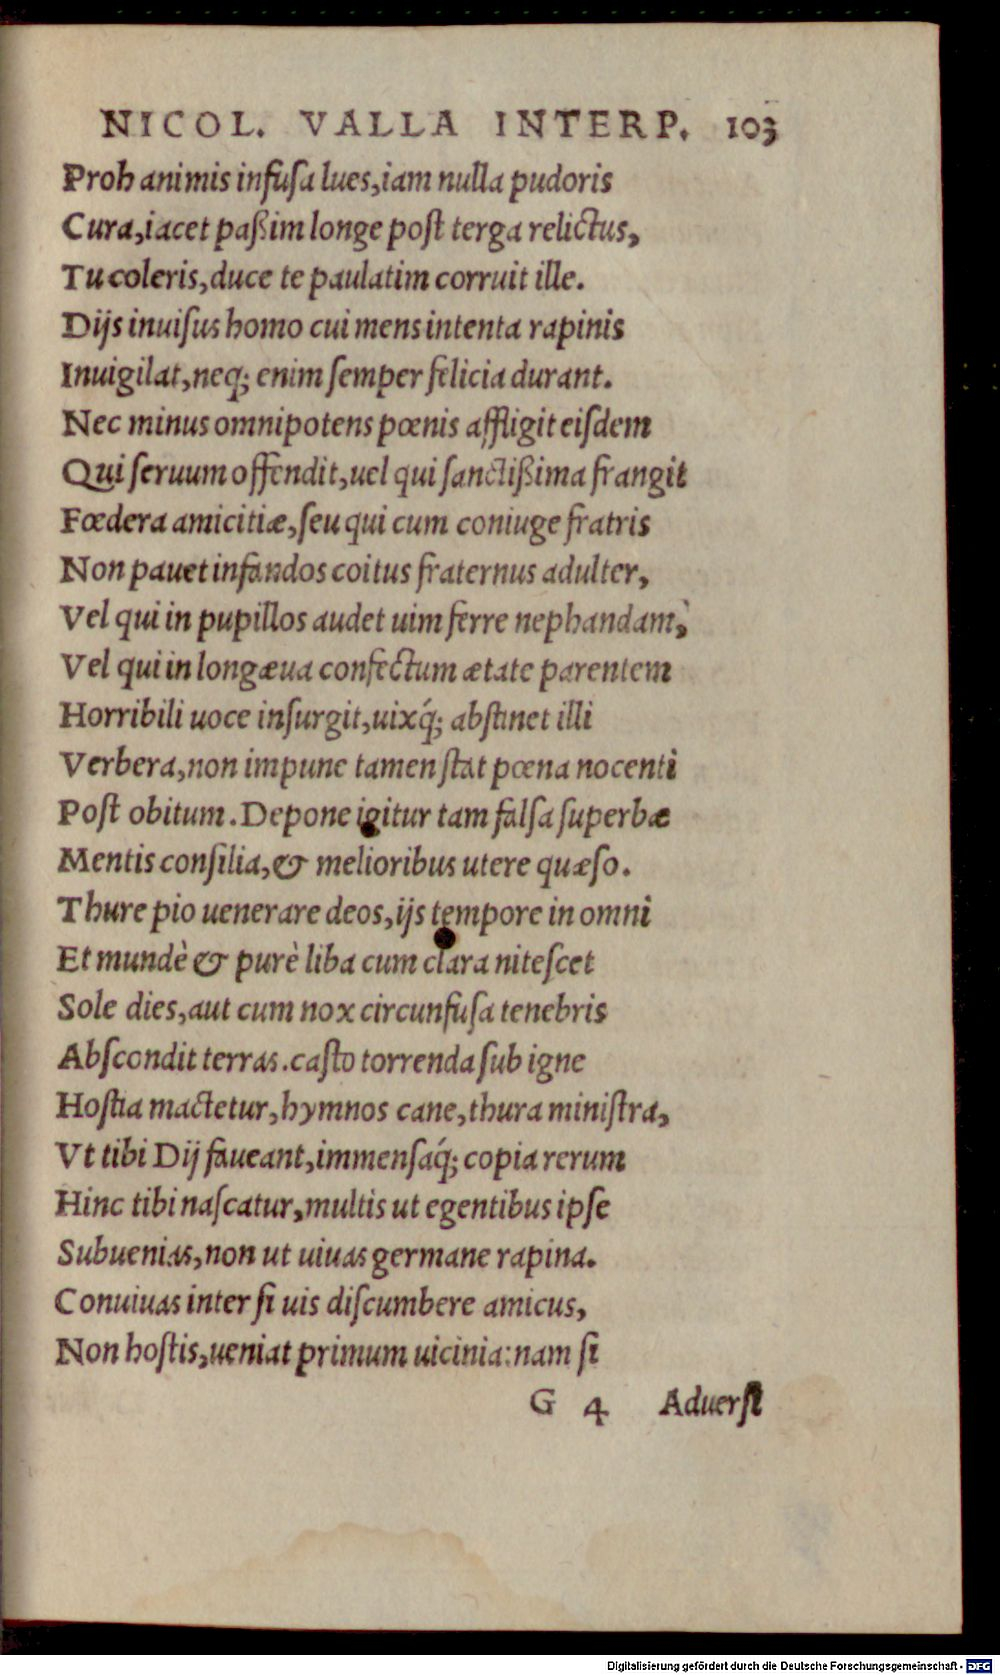 NICOL. VALLA INTERP. 103
Proh animis infuſa lues, iam nulla pudoris
Cura, iacet paßim longe poſt terga relictus,
Tu coleris, duce te paulatim corruit ille.
Dijs inuiſus homo cui mens intenta rapinis
Inuigilat, neq; enim ſemper felicia durant.
Nec minus omnipotens pœnis affligit eiſdem
Qui ſeruum offendit, uel qui ſanctißima frangit
Fœdera amicitiæ, ſeu qui cum coniuge fratris
Non pauet infandos coitus fraternus adulter,
Vel qui in pupillos audet uim ferre nephandam,
Vel qui in longæua confectum ætate parentem
Horribili uoce inſurgit, uixq́; abſtinet illi
Verbera, non impune tamen ſtat pœna nocenti
Poſt obitum. Depone igitur tam falſa ſuperbæ
Mentis conſilia, & melioribus utere quæſo.
Thure pio uenerare deos, ijs tempore in omni
Et mundè & purè liba cum clara niteſcet
Sole dies, aut cum nox circunfuſa tenebris
Abſcondit terras. caſto torrenda ſub igne
Hoſtia mactetur, hymnos cane, thura miniſtra,
Vt tibi Dij faueant, immenſaq́; copia rerum
Hinc tibi naſcatur, multis ut egentibus ipſe
Subuenias, non ut uiuas germane rapina.
Conuiuas inter ſi uis diſcumbere amicus,
Non hoſtis, ueniat primum uicinia: nam ſi
G 4 Aduerſi
Digitalisierung gefördert durch die Deutsche Forschungsgemeinschaft - DFG